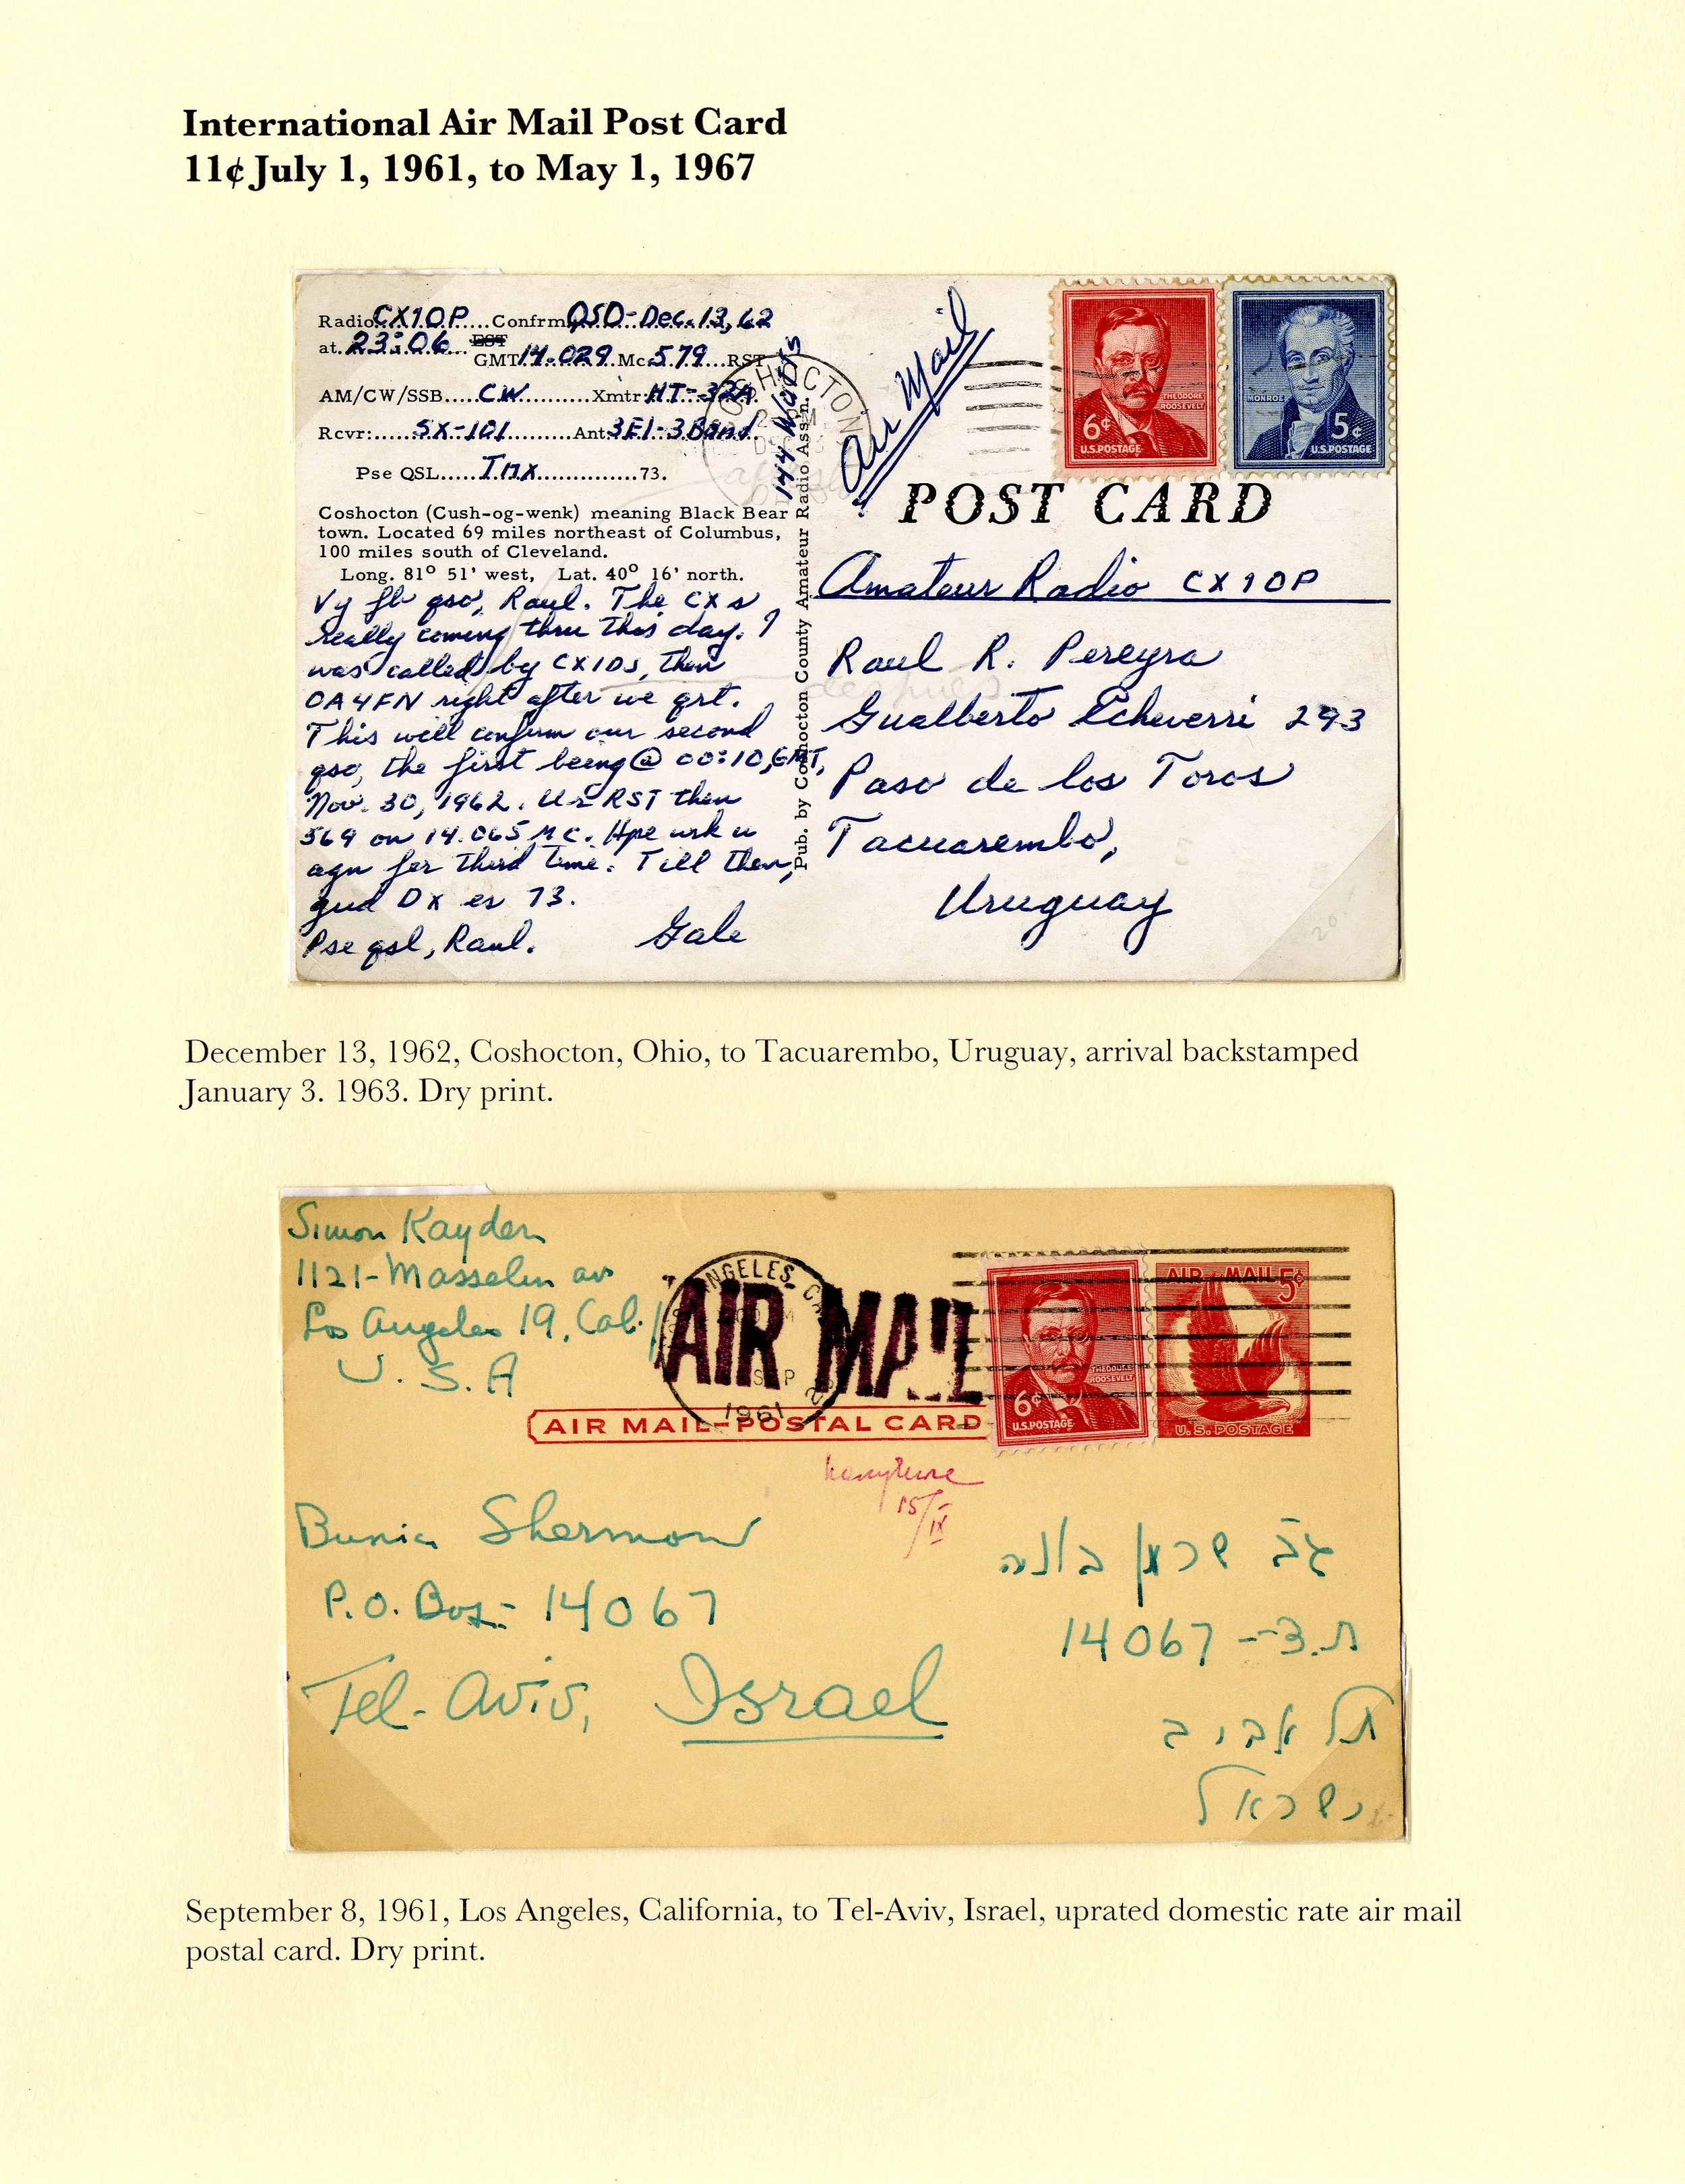 International Air Mail Post Card
11¢ July 1, 1961, to May 1, 1967
Radio CX1OP Confrm QSO-Dec. 13, 62
at 23:06 EST
GMT 14.029 Mc 579 RST
AM/CW/SSB CW Xmtr: HT-32A
144 Watts
Rcvr: SX-101 Ant: 3El-3Band
Pse QSL Tnx 73.
Coshocton (Cush-og-wenk) meaning Black Bear
town. Located 69 miles northeast of Columbus,
100 miles south of Cleveland.
Long. 81° 51' west, Lat. 40° 16' north.
Vy fb qso, Raul. The CX s
really coming thru this day. I
was called by CX1DS, then
OA4FN right after we qrt.
This will confirm our second
qso, the first being @ 00:10 GMT,
Nov. 30, 1962. Ur RST then
569 on 14.065 MC. Hpe wrk u
agn for third time. Till then,
gud Dx es 73.
Pse qsl, Raul. Gale
Pub. by Coshocton County Amateur Radio Ass'n.
COSHOCTON
Air Mail
6¢
THEODORE
ROOSEVELT
U.S.POSTAGE
MONROE
5¢
U.S.POSTAGE
POST CARD
Amateur Radio CX1OP
Raul R. Pereyra
Gualberto Echeverri 293
después
Paso de los Toros
Tacuarembo,
Uruguay
20.-
December 13, 1962, Coshocton, Ohio, to Tacuarembo, Uruguay, arrival backstamped
January 3. 1963. Dry print.
Simon Kayden
1121-Masselin av
Los Angeles 19, Cal.
U.S.A
LOS ANGELES, CA
SEP
1961
AIR MAIL
AIR MAIL-POSTAL CARD
THEODORE
ROOSEVELT
6¢
U.S.POSTAGE
AIR MAIL 5¢
U.S. POSTAGE
15/IX
Bunia Shermow
P.O. Box- 14067
Tel-Aviv, Israel
גב שרמן בוניה
ת.ד-- 14067
תל אביב
ישראל
September 8, 1961, Los Angeles, California, to Tel-Aviv, Israel, uprated domestic rate air mail
postal card. Dry print.